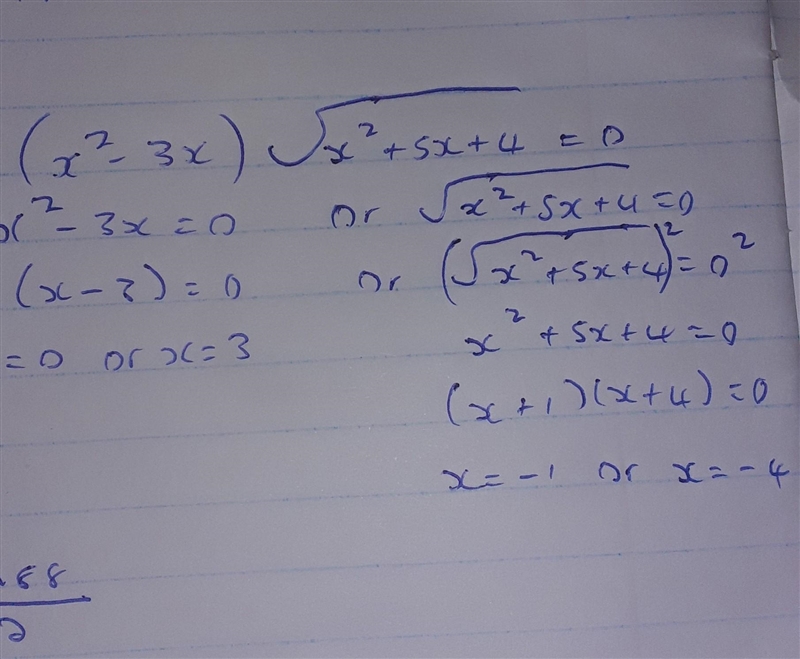 (x² - 3x) √(x² + 5x + 4) = 0
x² - 3x = 0 or √(x² + 5x + 4) = 0
(x - 3) = 0 or (√(x² + 5x + 4))² = 0²
= 0 or x = 3 x² + 5x + 4 = 0
(x + 1)(x + 4) = 0
x = -1 or x = -4
88
2